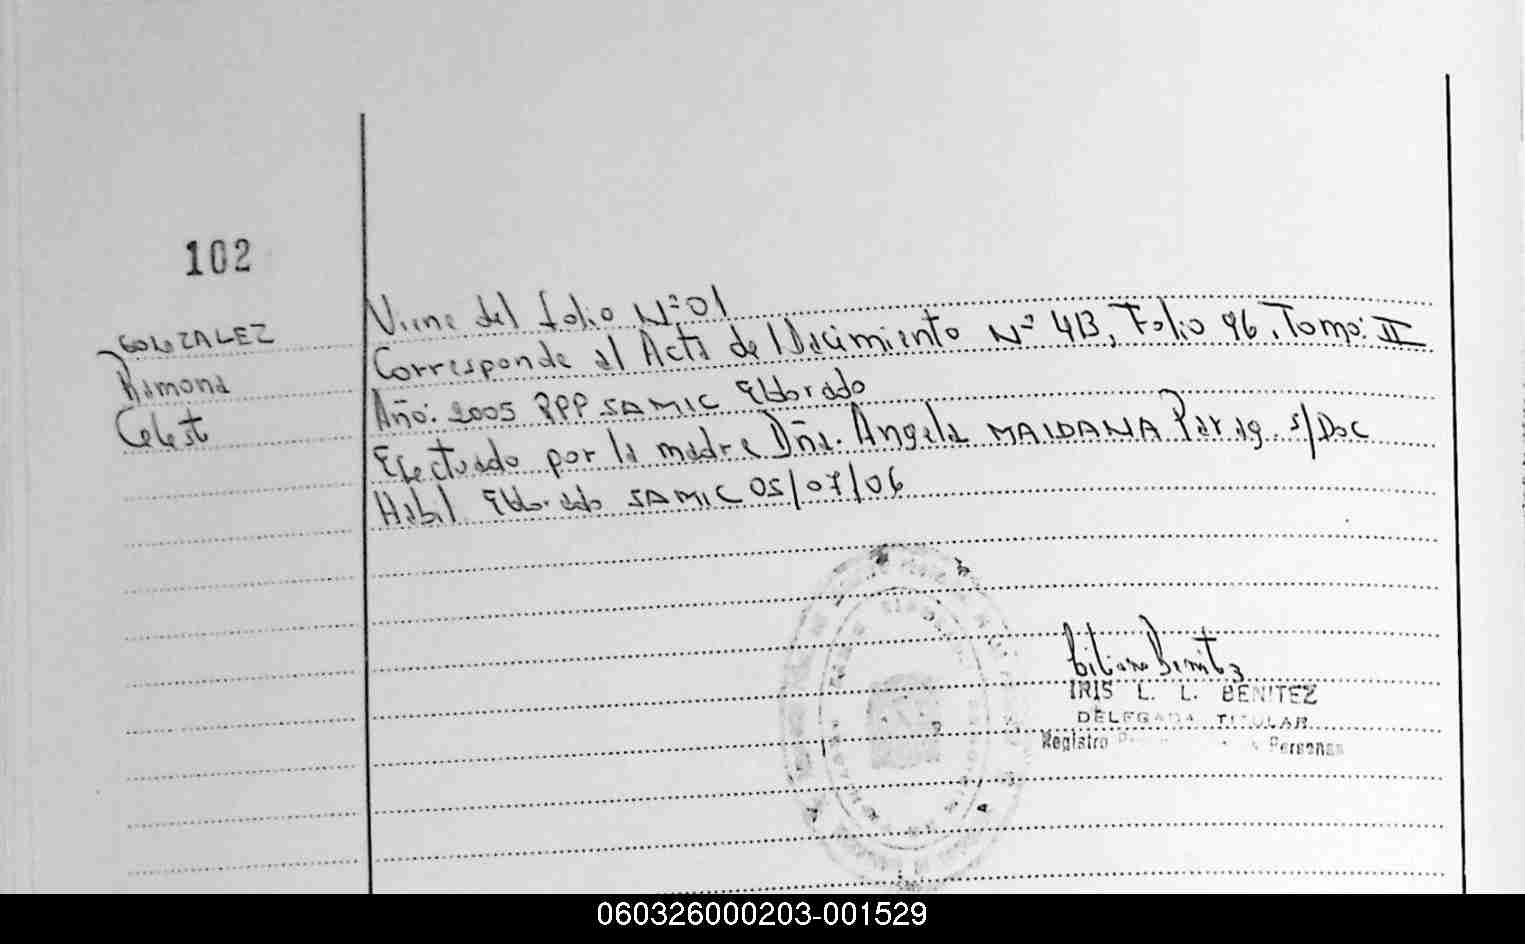 102
GONZALEZ
Ramona
Celest
Viene del folio Nº 01
Corresponde al Acta de Nacimiento Nº 413, Folio 96, Tomo: II
Año: 2005 RPP SAMIC Eldorado
Efectuado por la madre Dña. Angela MAIDANA Parag. s/Doc
Habil Eldorado SAMIC 05/07/06
IRIS L. L. BENITEZ
DELEGADA TITULAR
Registro Personas
060326000203-001529